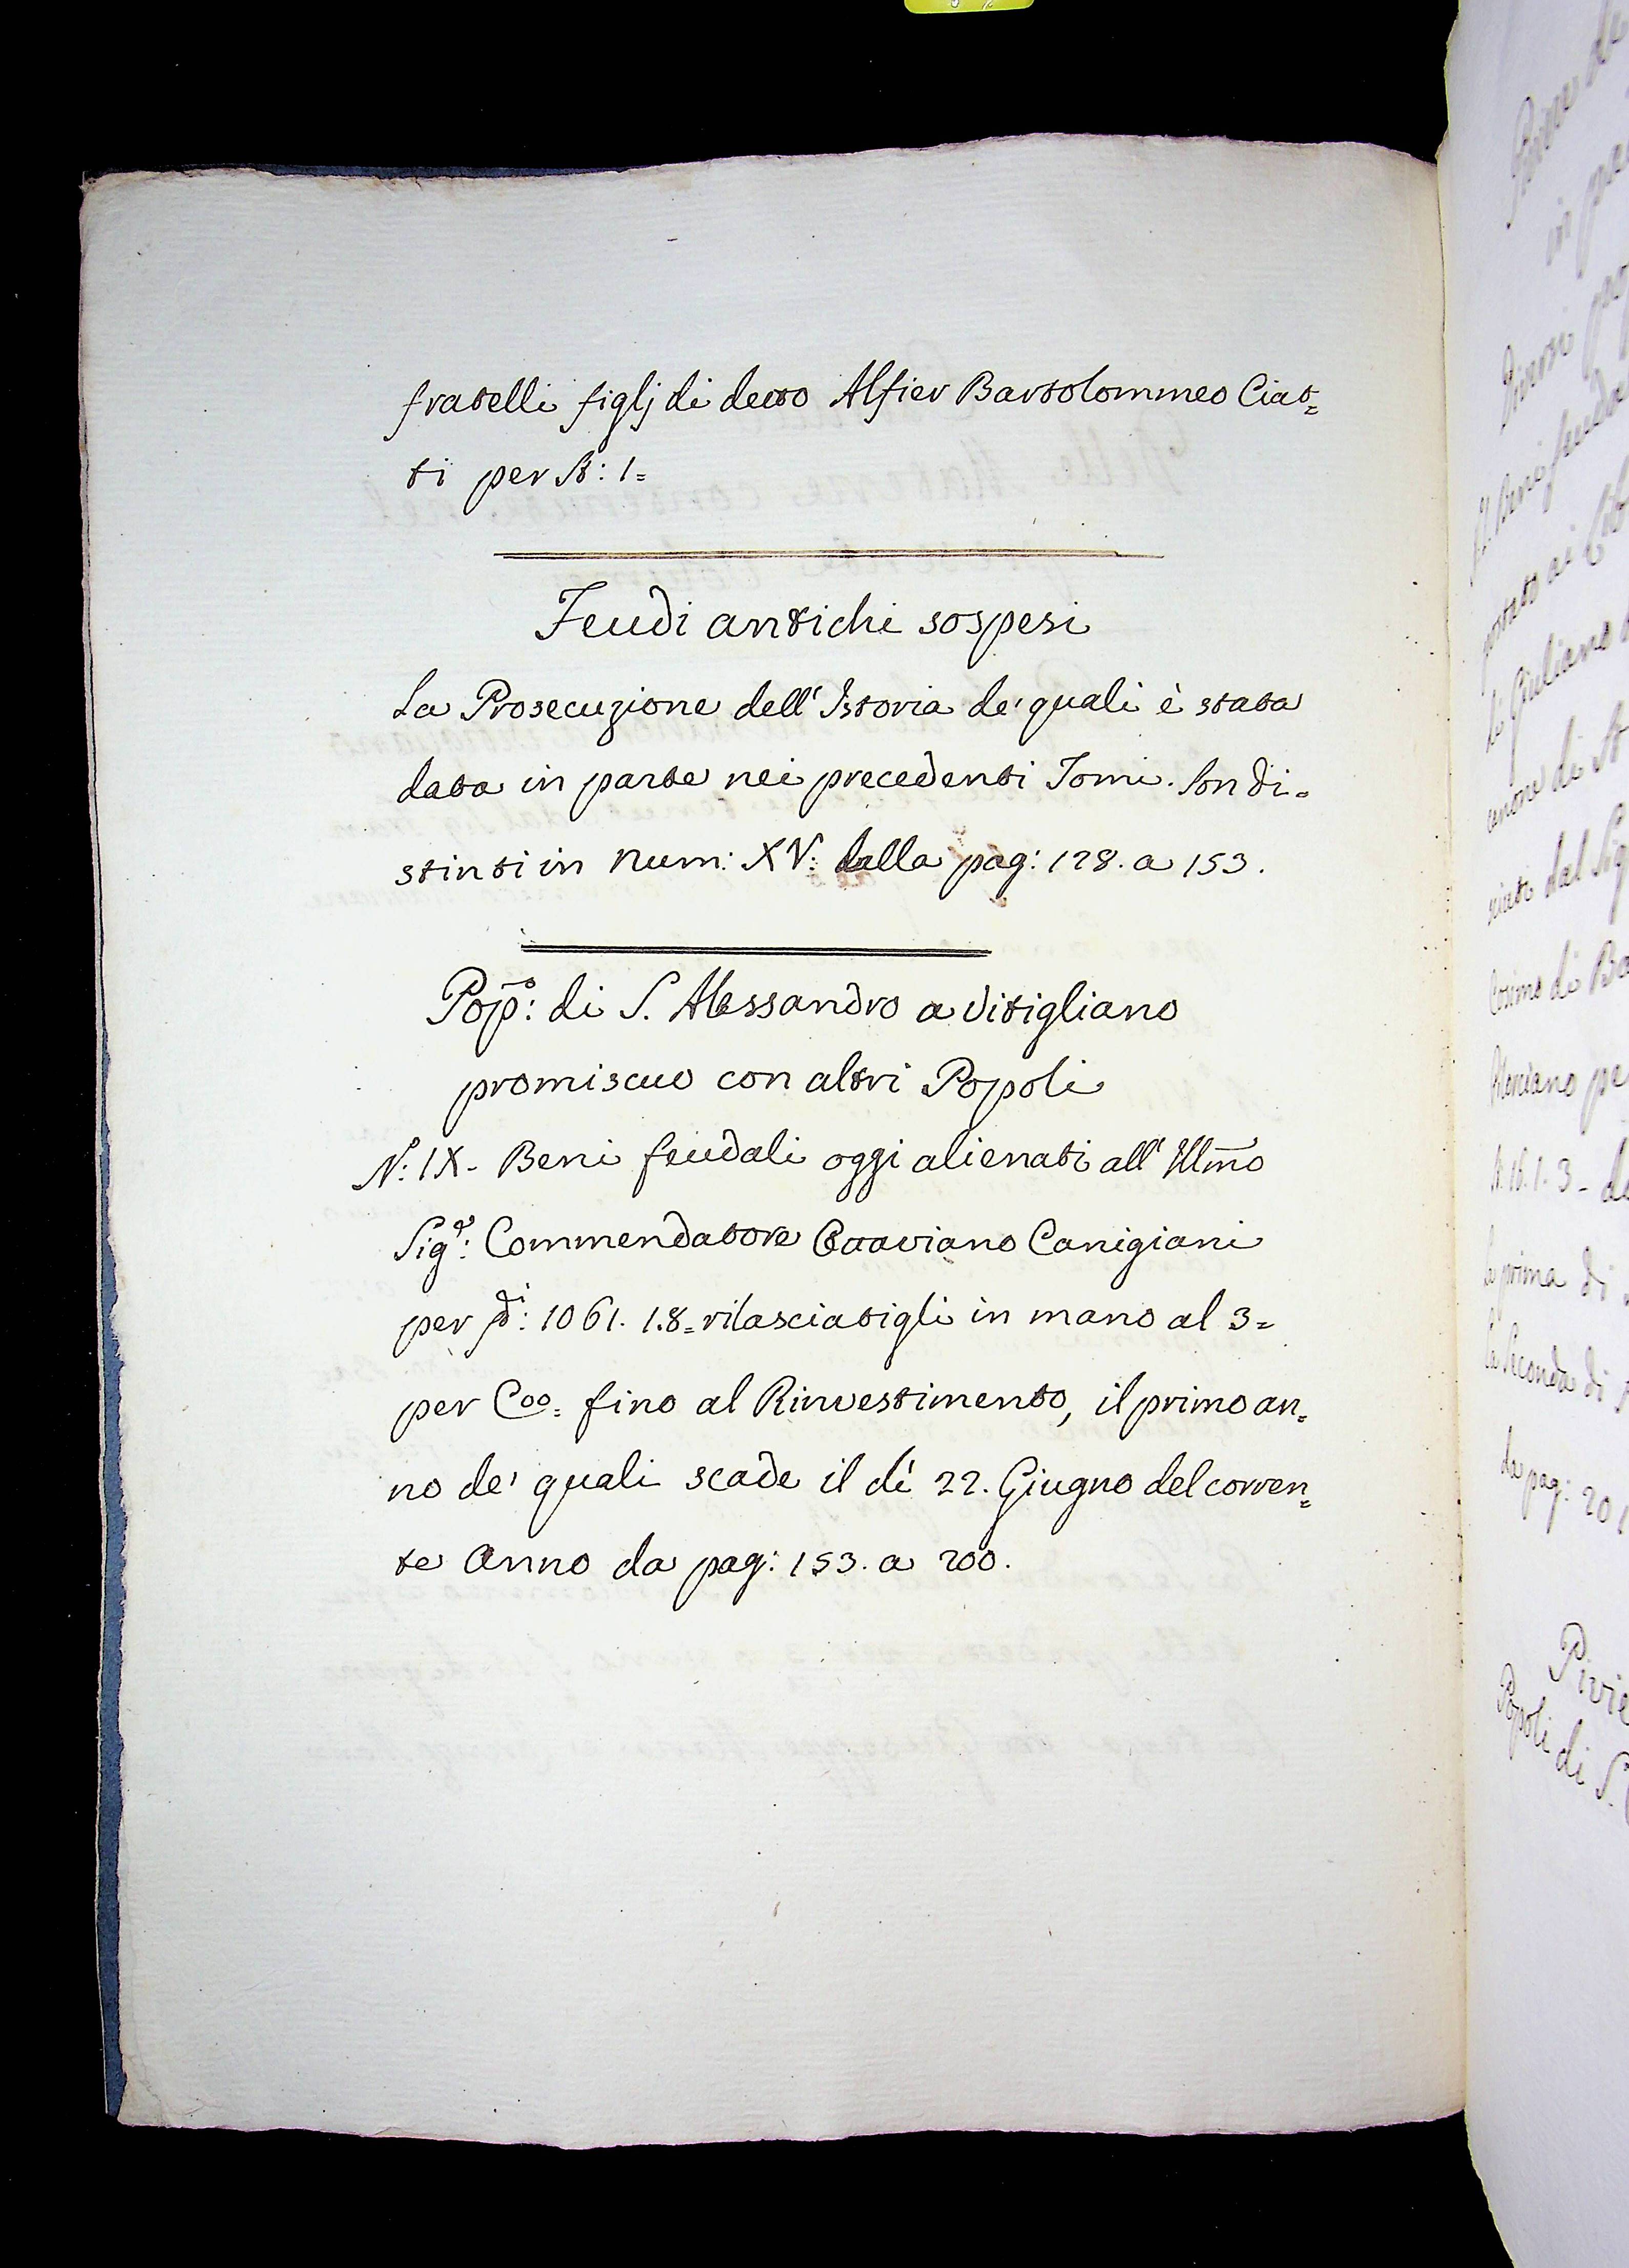 fratelli figlj di detto Alfier Bartolommeo Ciat=
ti per St: 1=
Feudi antichi sospesi
La Prosecuzione dell' Istoria de' quali è stata
data in parte nei precedenti Tomi. Son di=
stinti in Num: XV: dalla pag: 128. a 153.
Popo: di S. Alessandro a Vitigliano
promiscuo con altri Popoli
N: IX- Beni feudali oggi alienati all' Illmo
Sigr: Commendatore Ottaviano Canigiani
per di: 1061. 1.8= rilasciatigli in mano al 3=
per Coo= fino al Rinvestimento, il primo an=
no de' quali scade il dì 22. Giugno del corren=
te Anno da pag: 153. a 200.
in
di Giuliano
canone di St
dal Sig
Cosimo di Ba
la prima di
la Seconda di
da pag: 201
Pivie
Popoli di S.